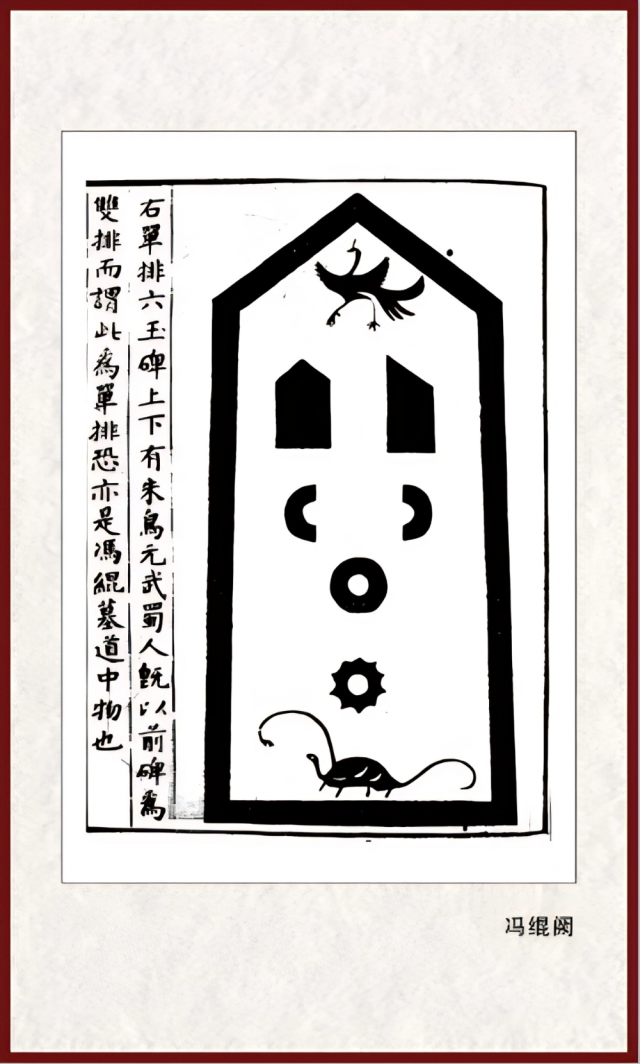 右單排六玉碑上下有朱鳥元武蜀人旣以前碑爲
雙排而謂此爲單排恐亦是馮緄墓道中物也
冯绲阙